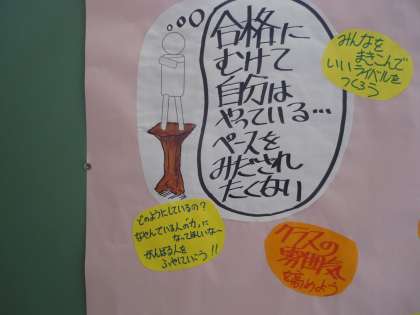 合格に
むけて
自分は
やっている…
ペースを
みだされ
たくない
みんなを
まきこんで
いいライバルを
つくろう
どのようにしているの？
なやんでいる人の「力」に
なってほしいな～
がんばる人を
ふやしていこう!!
クラスの
雰囲気
を高めよう